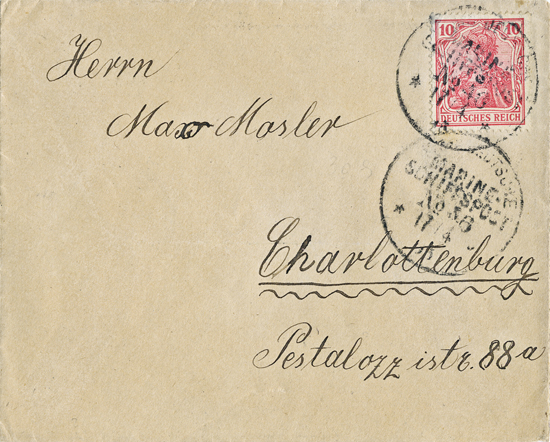 Herrn
Max Mosler
Charlottenburg
Pestalozzistr. 88a
10 10
DEUTSCHES REICH
MARINE-
SCHIFFSPOST
No
17 4